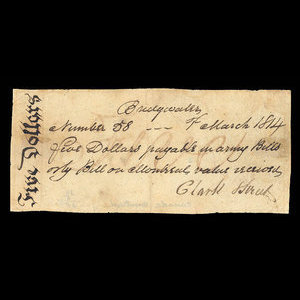 Five Dollars
Bridgwater
Number 58 --- March 1814
Five Dollars payable in army Bills
or by Bill on Montreal value received
Clark Street